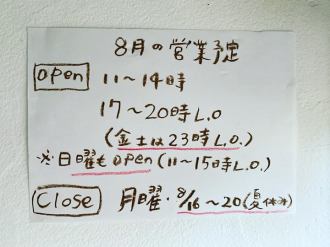 8月の営業予定
open 11〜14時
17〜20時L.O
(金土は23時L.O.)
※日曜もopen(11〜15時L.O.)
Close 月曜・8/16〜20(夏休み)